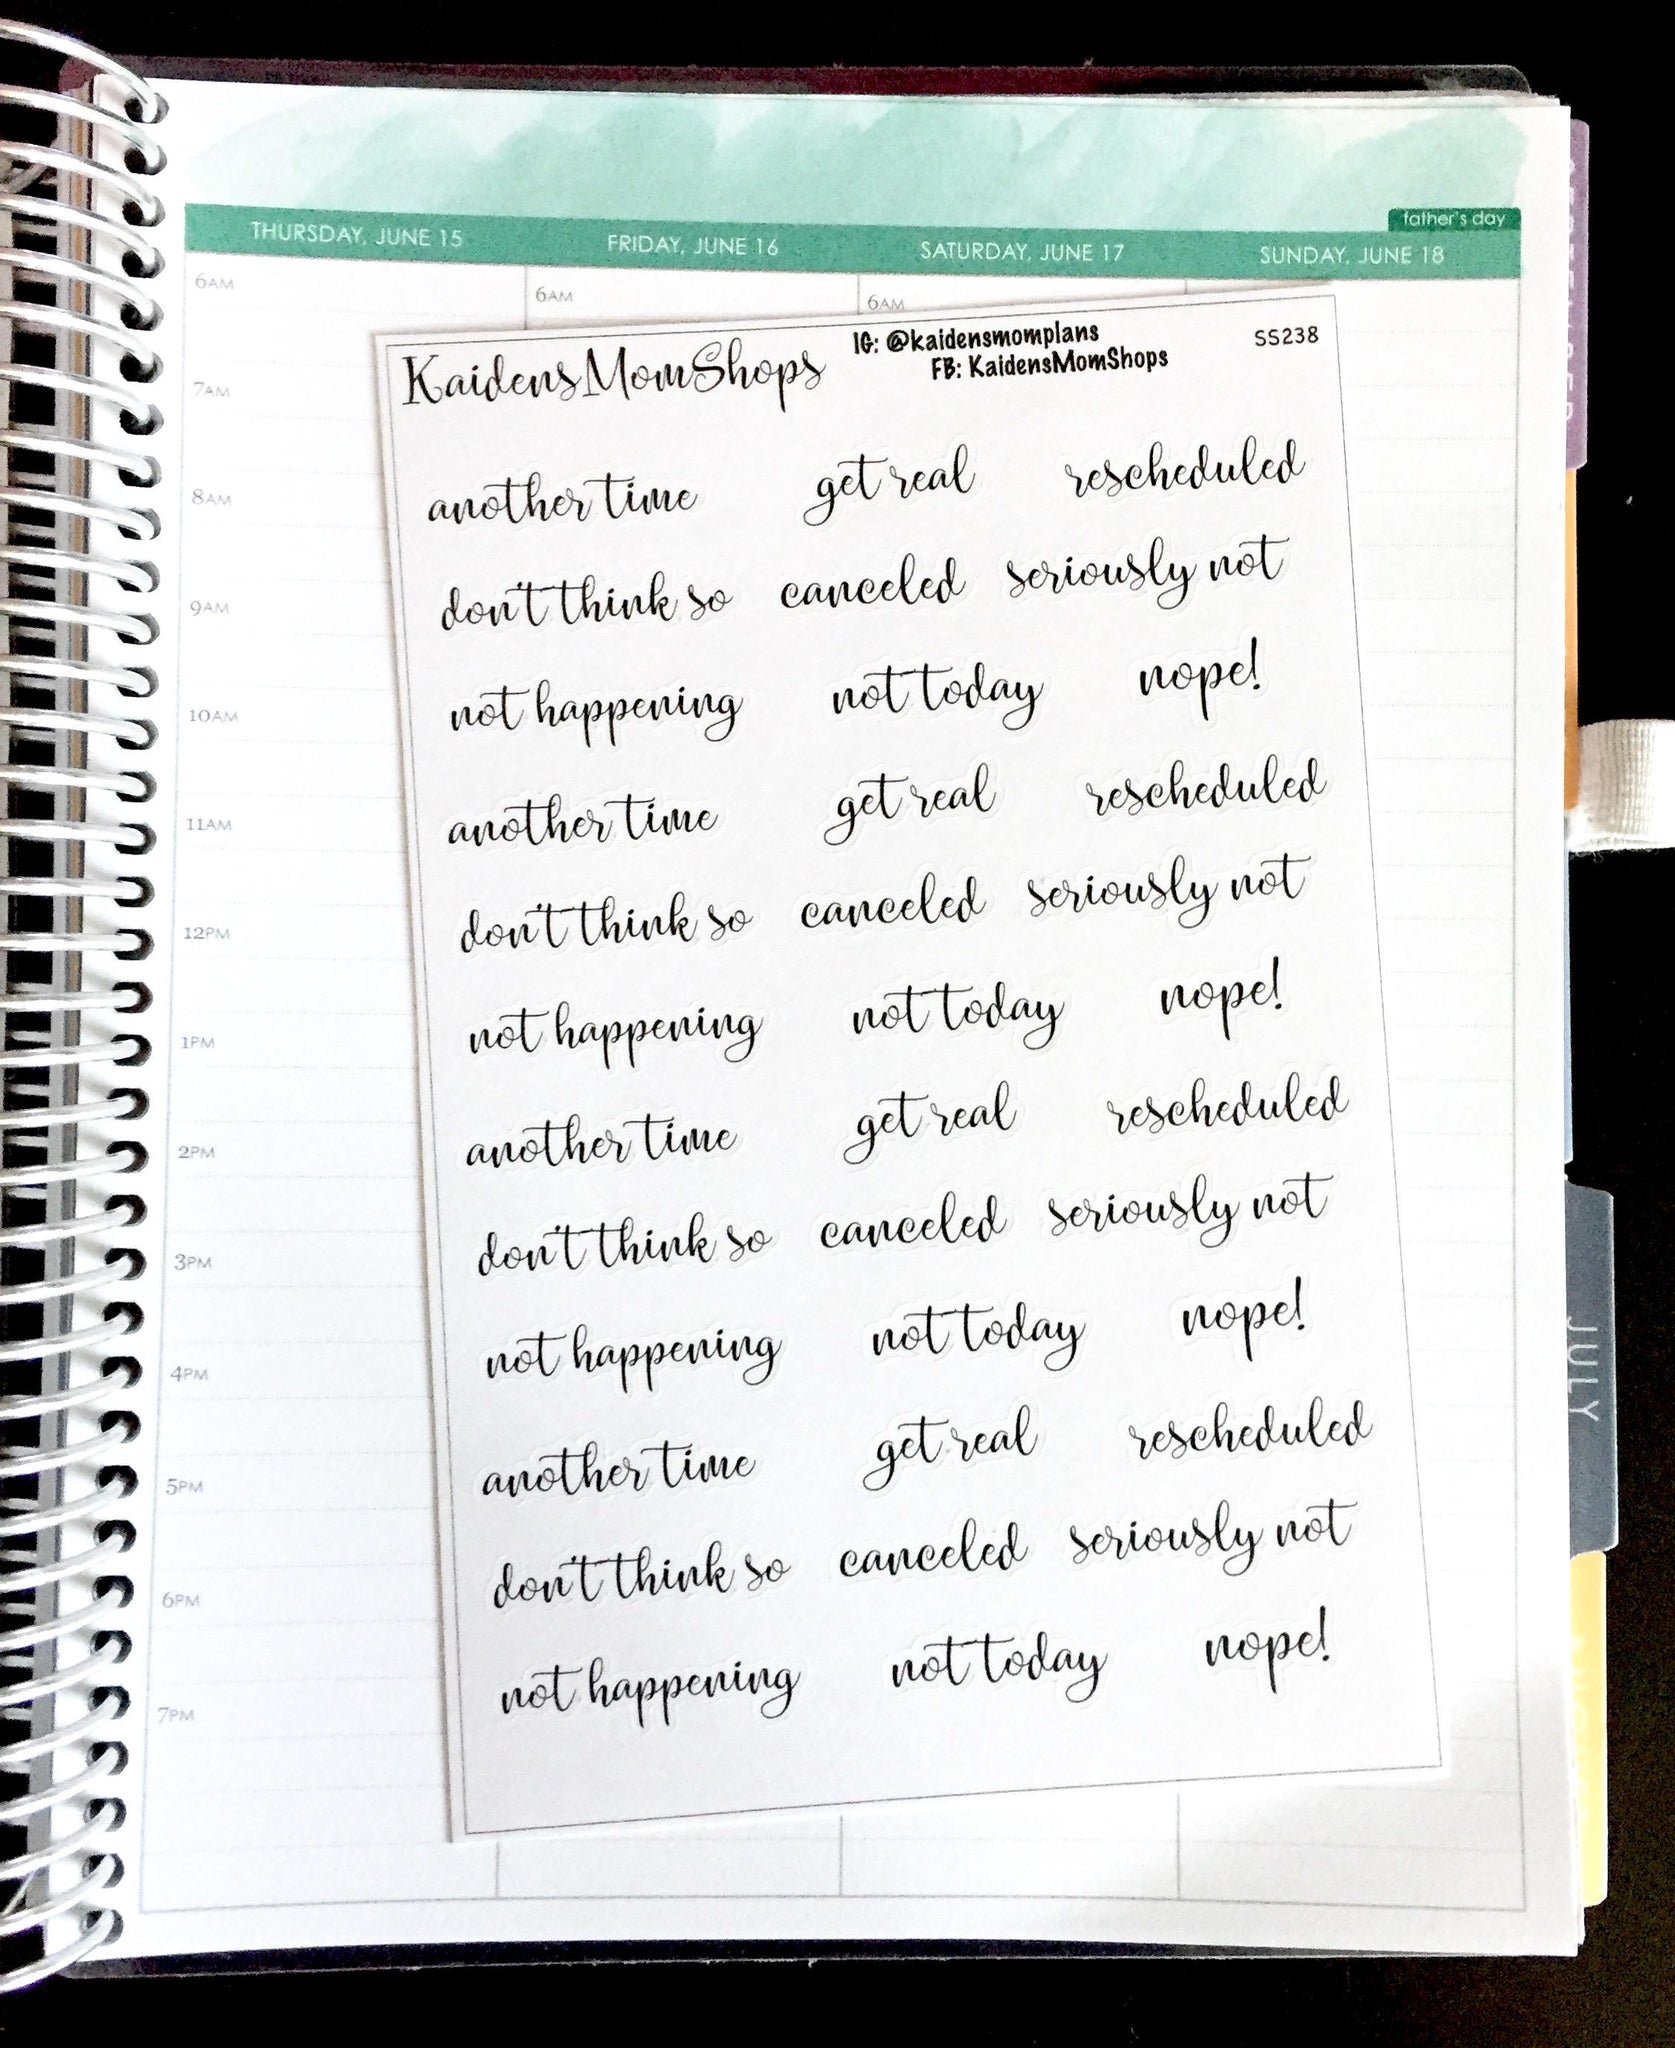 father's day
THURSDAY, JUNE 15 FRIDAY, JUNE 16 SATURDAY, JUNE 17 SUNDAY, JUNE 18
6AM 6AM 6AM
KaidensMomShops IG: @kaidensmomplans SS238
FB: KaidensMomShops
7AM
another time get real rescheduled
8AM
don't think so canceled seriously not
9AM
not happening not today nope!
10AM
another time get real rescheduled
11AM
don't think so canceled seriously not
12PM
not happening not today nope!
1PM
another time get real rescheduled
2PM
don't think so canceled seriously not
3PM
not happening not today nope!
4PM
another time get real rescheduled
5PM
don't think so canceled seriously not
6PM
not happening not today nope!
7PM
JULY